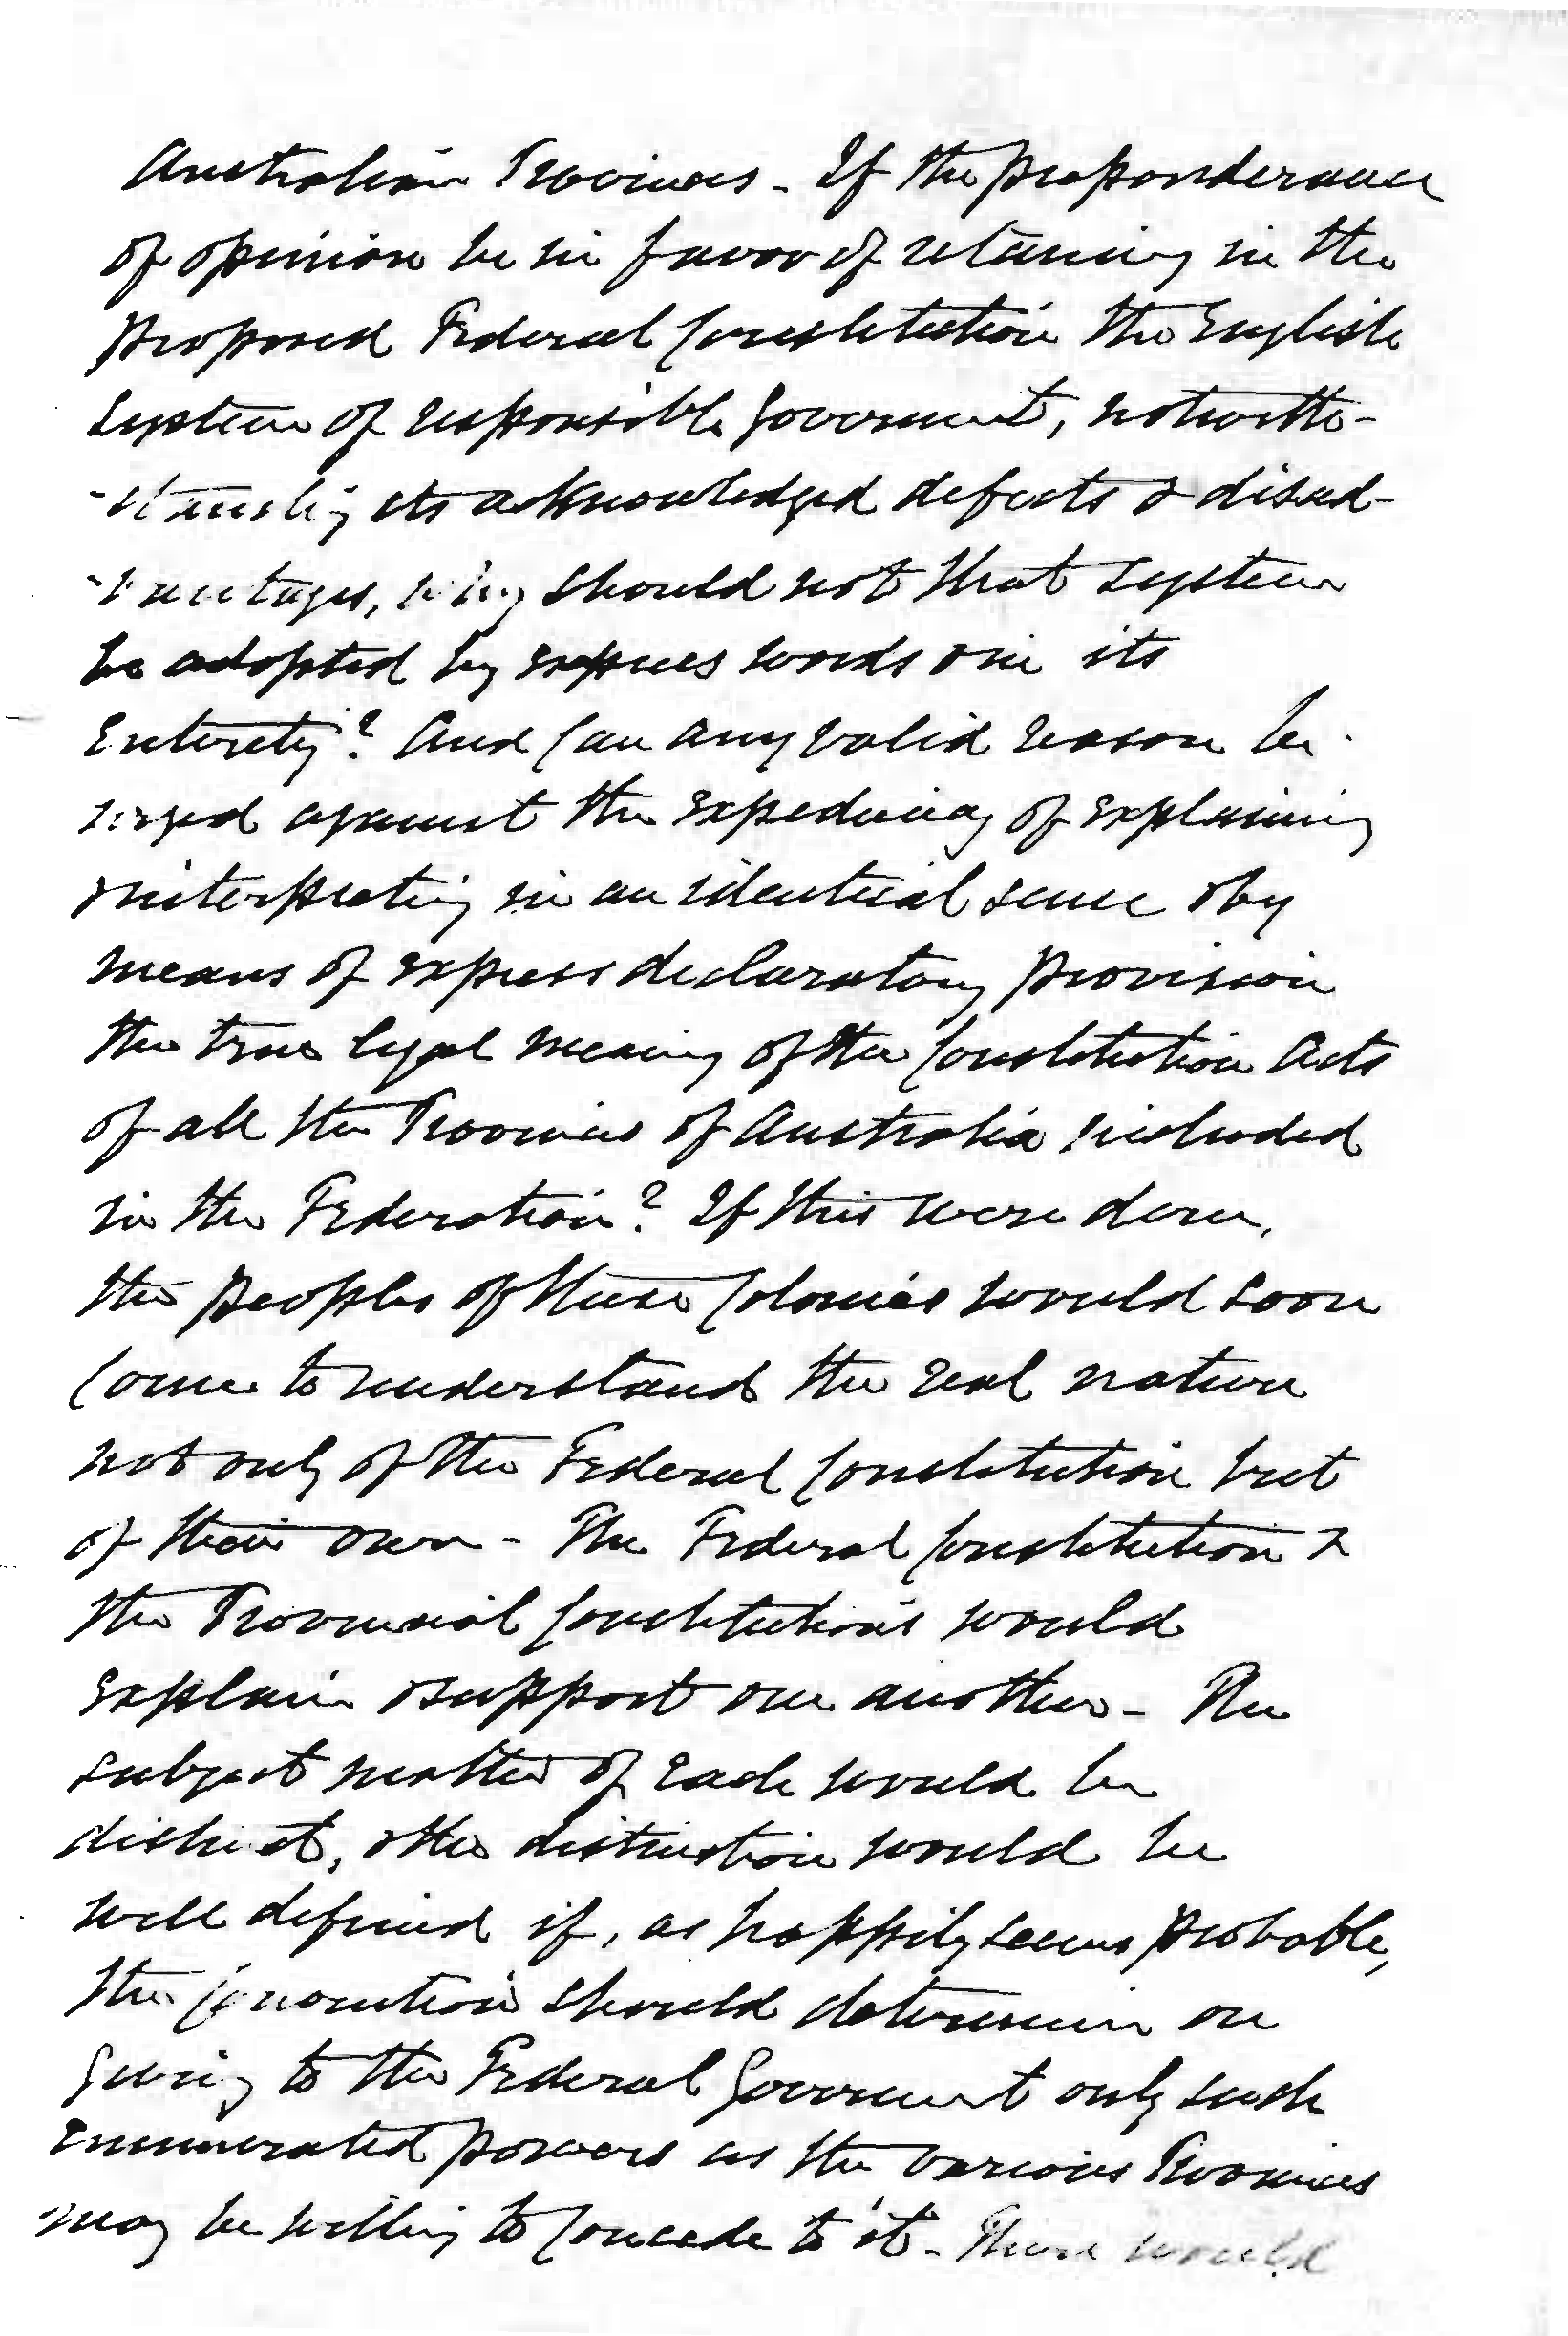 Australian Provinces - If the preponderance
of opinion be in favor of retaining in the
proposed Federal Constitution the English
System of responsible Government, notwith-
-standing its acknowledged defects & disad-
-vantages, why should not that system
be adopted by express words & in its
Entirety? And Can any valid reason be
urged against the Expediency of Explaining
& interpreting in an identical sense & by
means of Express declaratory provision
the true legal meaning of the Constitution Acts
of all the Provinces of Australia included
in the Federation? If this were done,
the peoples of these Colonies would soon
Come to understand the real nature
not only of the Federal Constitution but
of their own - The Federal Constitution &
the Provincial Constitutions would
Explain & support one another - The
subject matter of Each would be
distinct, & the distinction would be
well defined if, as happily seems probable,
the Convention should determine on
Giving to the Federal Government only such
Enumerated powers as the various Provinces
may be willing to Concede to it - There would